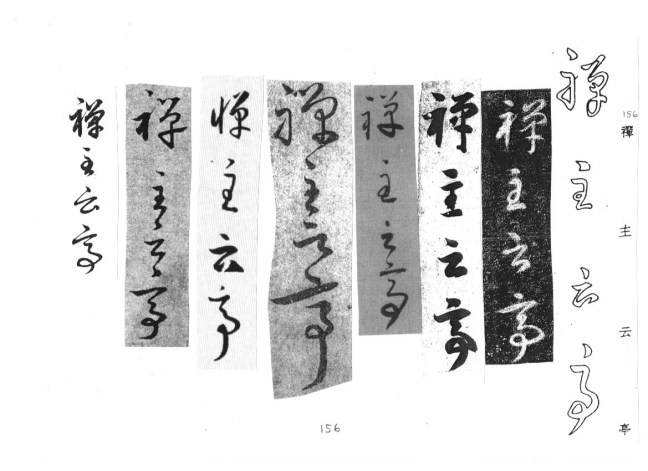 156
禪主云亭
禪主云亭
禪主云亭
禪主云亭
禪主云亭
禪主云亭
禪主云亭
禪主云亭
禪主云亭
156